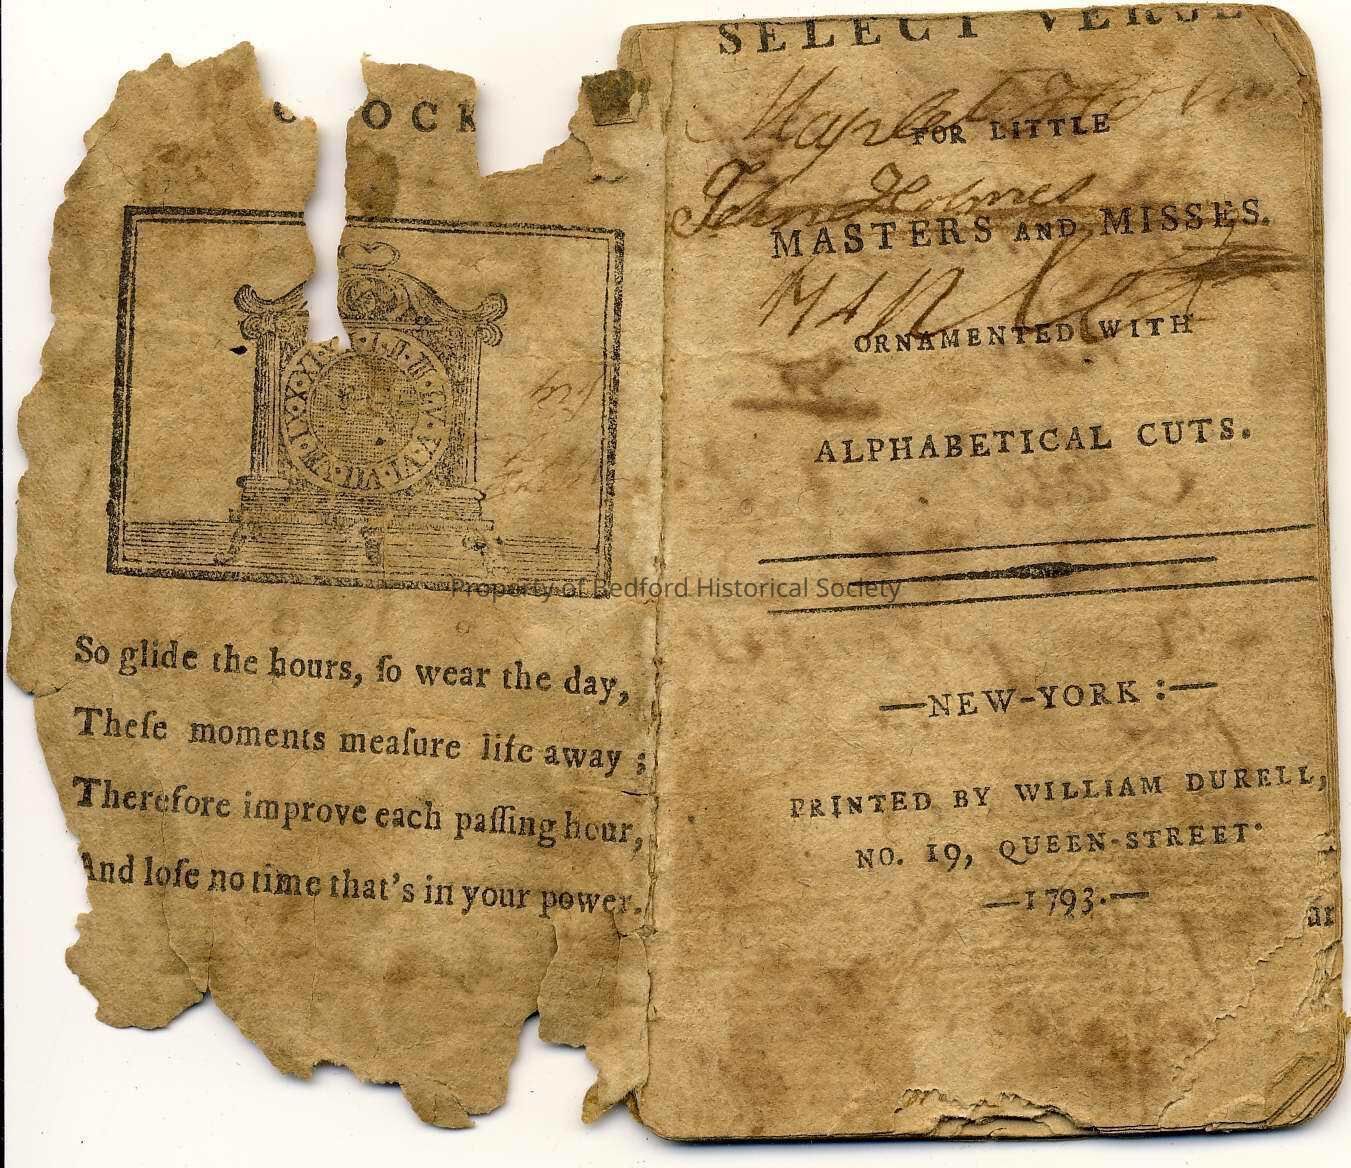 CLOCK
I II III IV V VI VII VIII IX X XI XII
So glide the hours, ſo wear the day,
Theſe moments meaſure life away ;
Therefore improve each paſſing hour,
And loſe no time that's in your power.
SELECT VERSE
FOR LITTLE
John Holmes
MASTERS AND MISSES.
ORNAMENTED WITH
ALPHABETICAL CUTS.
—NEW-YORK :—
PRINTED BY WILLIAM DURELL,
NO. 19, QUEEN-STREET.
—1793.—
ar
Property of Bedford Historical Society